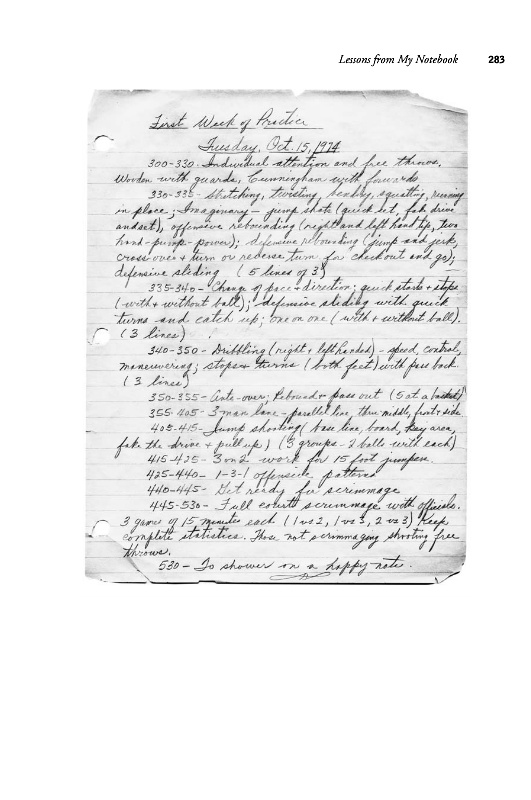 Lessons from My Notebook 283
First Week of Practice
Tuesday, Oct. 15, 1974
300-330- Individual attention and free throws,
Wooden with guards, Cunningham with forwards
330-335- Stretching, twisting, bending, squatting, running
in place; Imaginary - jump shots (quick set, fake drive
and set), offensive rebounding (right and left hand tip, two
hand-pump-power); defensive rebounding (jump and jerk,
cross over + turn or reverse turn for checkout and go);
defensive sliding (5 lines of 3)
335-340- Change of pace + direction; quick starts + stops
(with + without ball); defensive sliding with quick
turns and catch up; one on one (with + without ball).
(3 lines)
340-350- Dribbling (right + left handed) - speed, control,
maneuvering; stops + turns (both feet) with pass back
(3 lines)
350-355- Ante-over; Rebound + pass out (5 at a basket)
355-405- 3 man lane - parallel line, thru middle, front + side
405-415- Jump shooting (base line, board, key area,
fake the drive + pull up) (3 groups - 2 balls with each)
415-425- 3 on 2 work for 15 foot jumpers.
425-440- 1-3-1 offensive patterns
440-445- Get ready for scrimmage
445-530- Full court scrimmage with officials.
3 games of 15 minutes each (1 vs 2, 1 vs 3, 2 vs 3) Keep
complete statistics. Those not scrimmaging shooting free
throws.
530- To shower on a happy note.